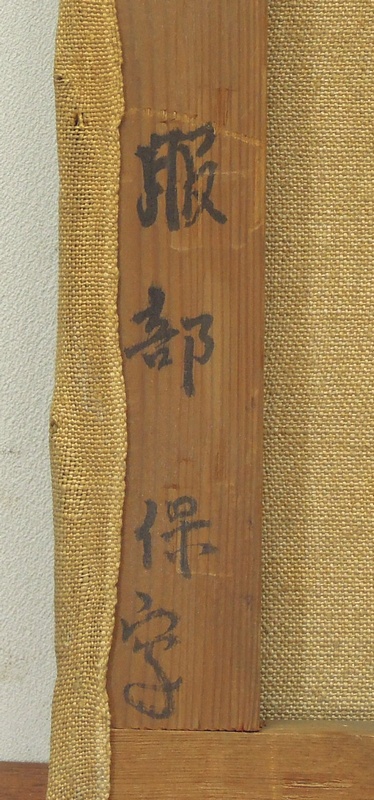 服部保守